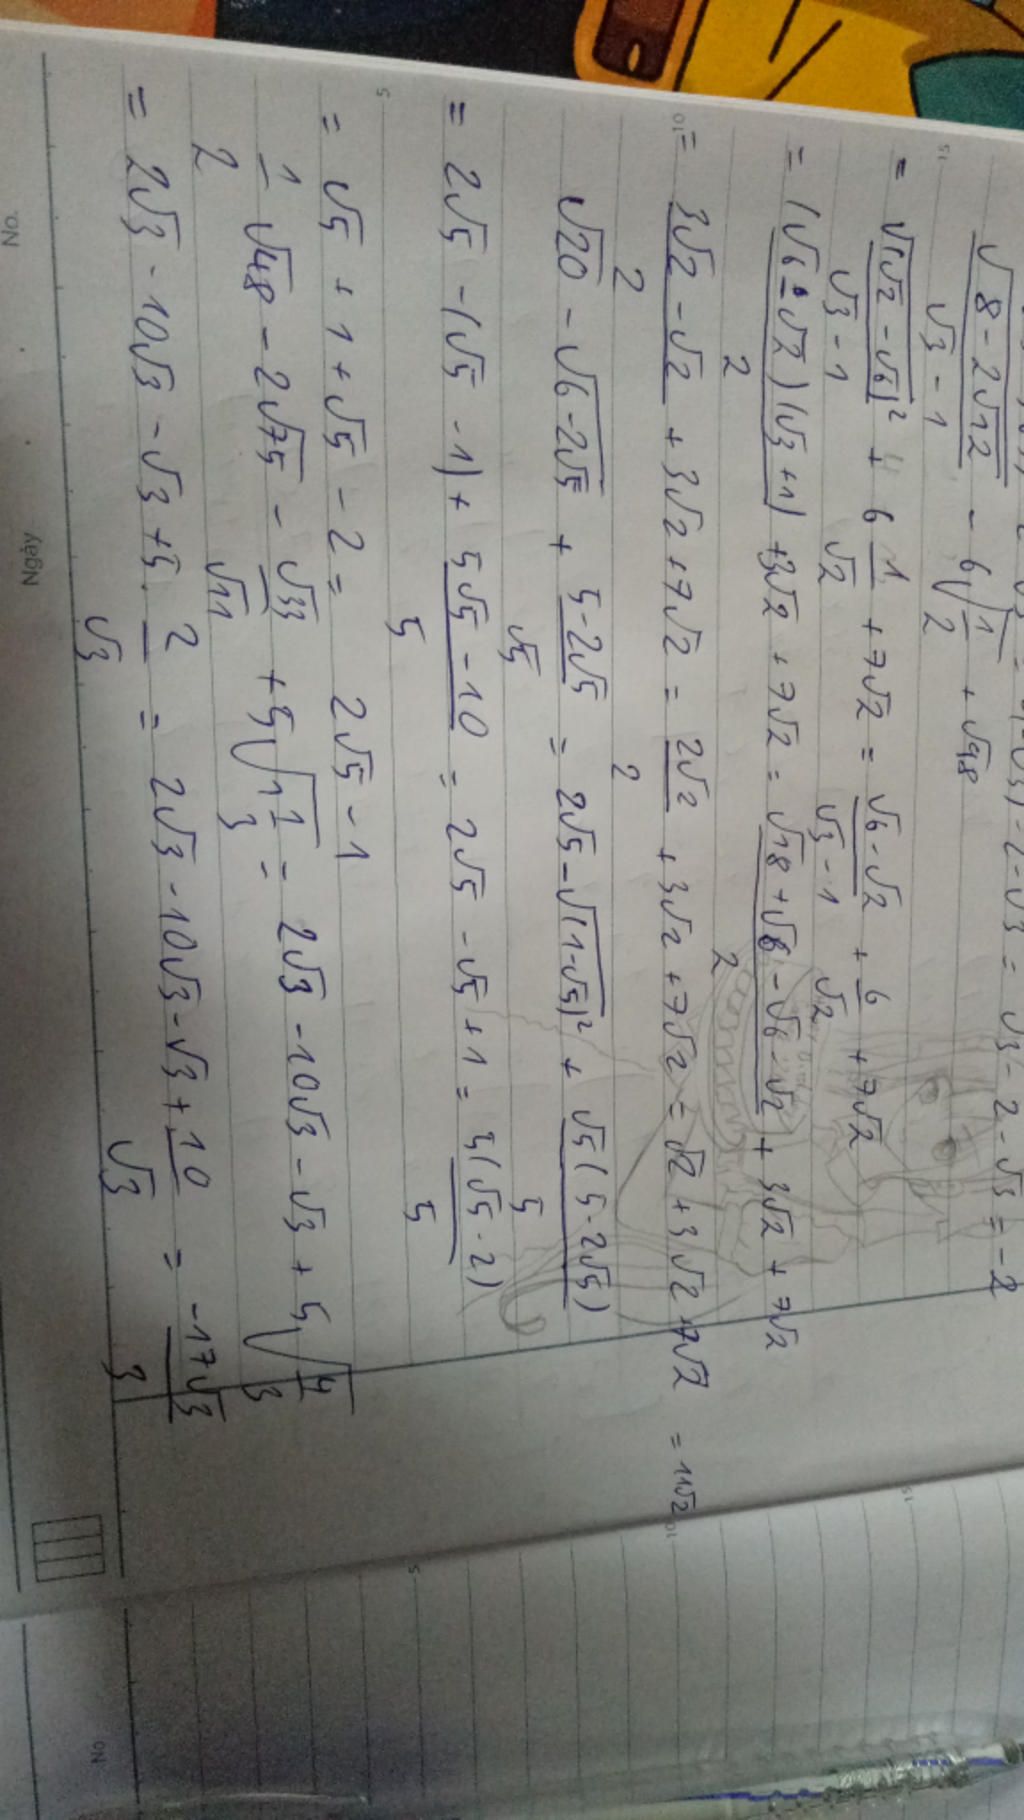 √3 - 2 - √3 = -2
√(8 - 2√12) / (√3 - 1) - 6√(1/2) + √98
= √(√2 - √6)² / (√3 - 1) + 6 1/√2 + 7√2 = (√6 - √2) / (√3 - 1) + 6/√2 + 7√2
= (√6 - √2)(√3 + 1) / 2 + 3√2 + 7√2 = (√18 + √6 - √6 - √2) / 2 + 3√2 + 7√2
= (3√2 - √2) / 2 + 3√2 + 7√2 = 2√2 / 2 + 3√2 + 7√2 = √2 + 3√2 + 7√2 = 11√2
√20 - √(6 - 2√5) + (5 - 2√5) / √5 = 2√5 - √(1 - √5)² + √5(5 - 2√5) / 5
= 2√5 - (√5 - 1) + (5√5 - 10) / 5 = 2√5 - √5 + 1 = 5(√5 - 2) / 5
= √5 + 1 + √5 - 2 = 2√5 - 1
1/2 √48 - 2√75 - √33 / √11 + 5√(1 1/3) = 2√3 - 10√3 - √3 + 5√(4/3)
= 2√3 - 10√3 - √3 + 5 . 2/√3 = 2√3 - 10√3 - √3 + 10/√3 = -17√3 / 3
15
10
5
15
10
5
No.
Ngày
No